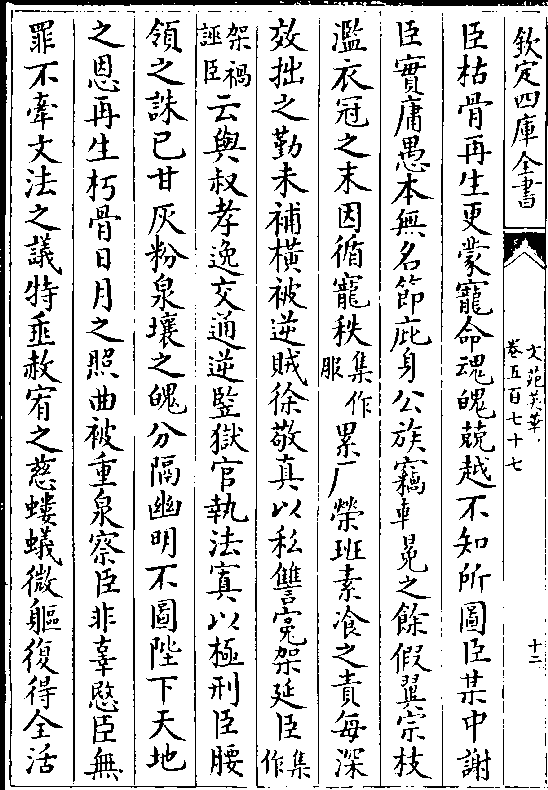 欽定四庫全書
文苑英華
卷五百七十七
十二
臣枯骨再生更蒙寵命魂魄兢越不知所圖臣某中謝
臣實庸愚本無名節庇身公族竊車冕之餘假翼宗枝
濫衣冠之末因循寵秩集作服累厂榮班素飡之責每深
效拙之勤未補橫被逆賊徐敬真以私讐寃架延臣集作
架禍誣臣云與叔孝逸交通逆監獄官執法寘以極刑臣腰
領之誅已甘灰粉泉壤之魄分隔幽明不圖陛下天地
之恩再生朽骨日月之照曲被重泉察臣非辜愍臣無
罪不牽文法之議特垂赦宥之慈螻蟻微軀復得全活